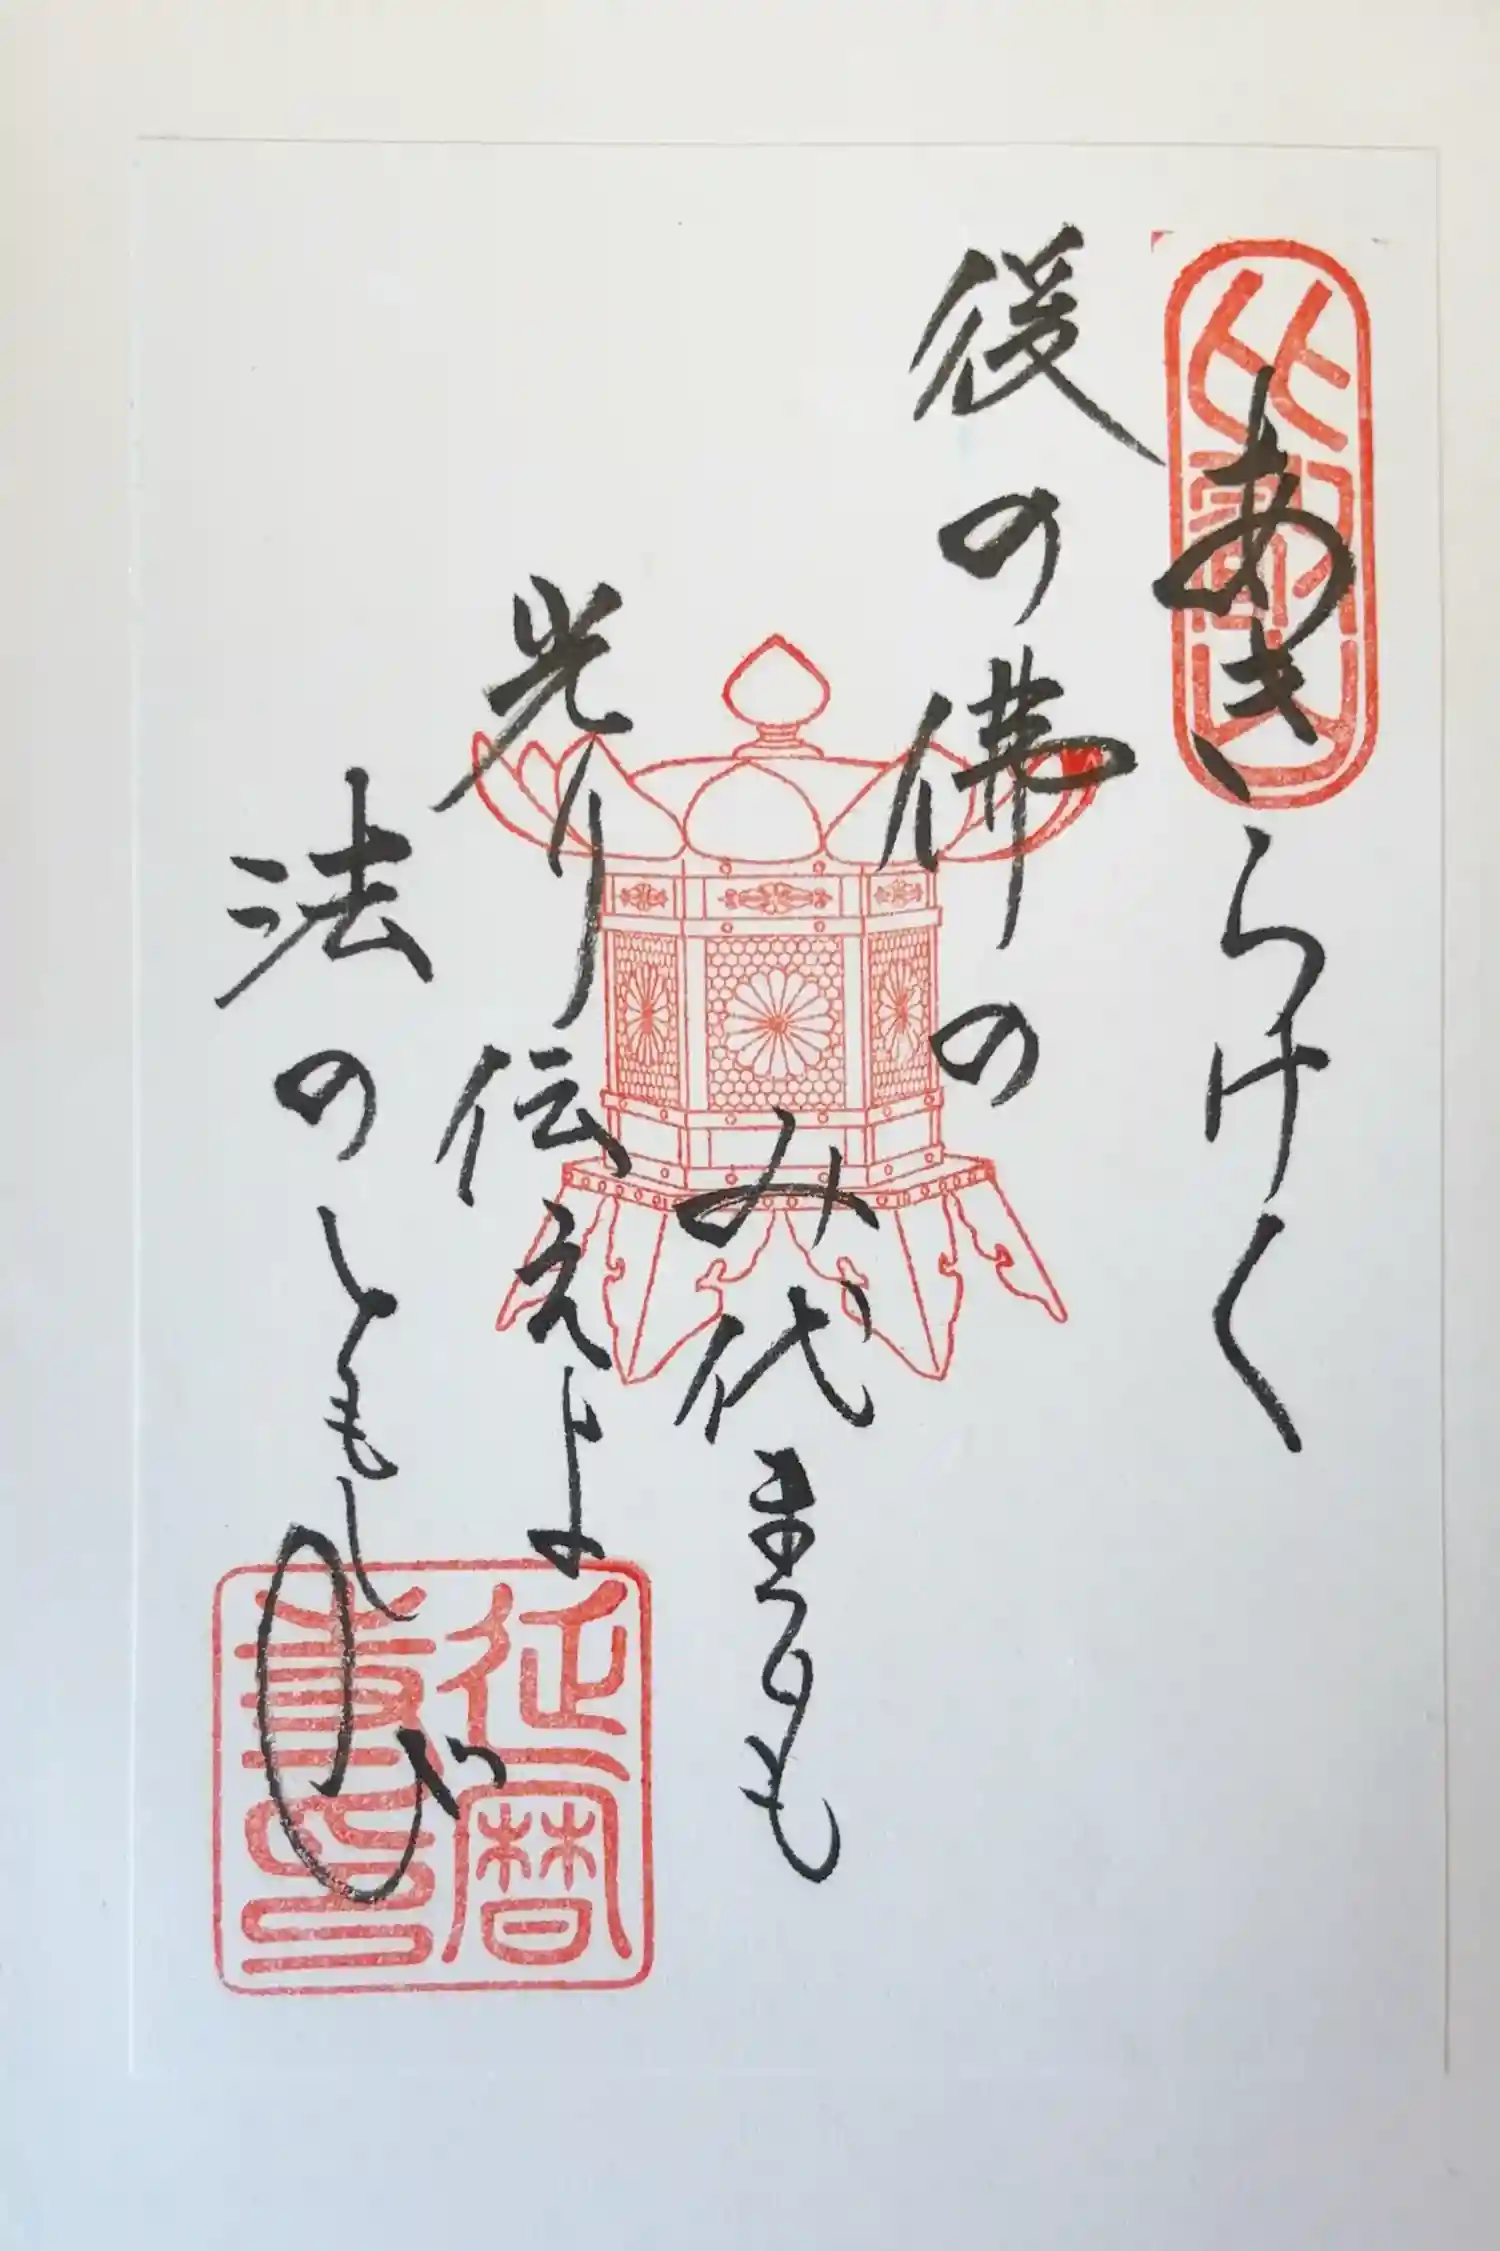 比叡山
あきらけく
後の佛の
み代までも
光り伝えよ
法のともしび
延暦
書印